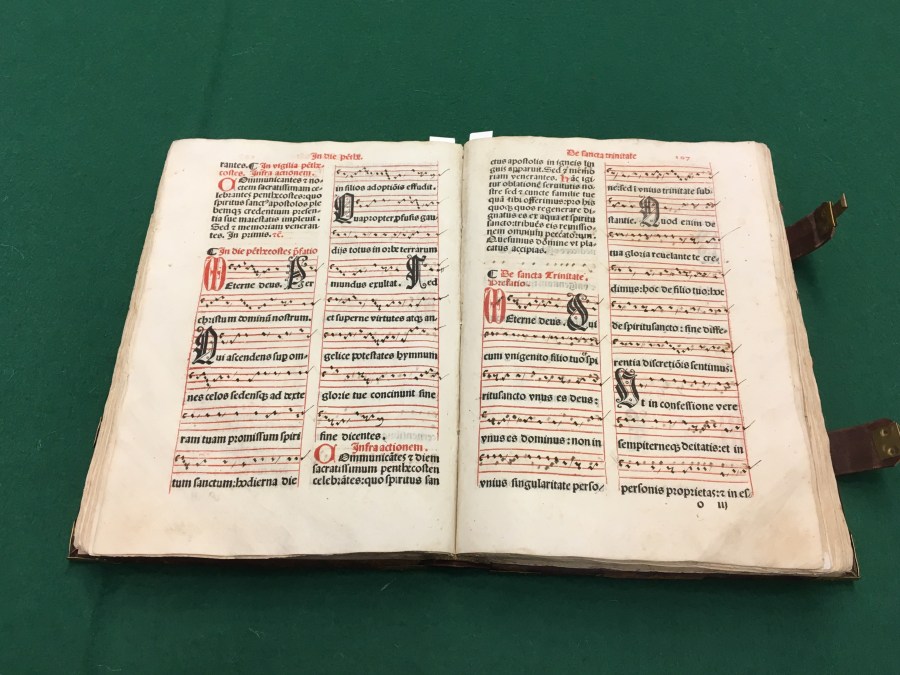 In die pēthc̄.
rantes. ¶ In vigilia pēthe-
costes. Infra actionem.
Communicantes ⁊ no-
ctem sacratissimam ce-
lebrantes penthecostes: quo
spiritus sanctꝰ apostolos ple
bemqꝫ credentium presen-
tia sue maiestatis impleuit.
Sed ⁊ memoriam veneran-
tes. In primis. ⁊c̄.
¶ In die pēthecostes p̄fatio
Eterne deus. Per
christum dominū nostrum.
Qui ascendens sup om-
nes celos sedensqꝫ ad dexte
ram tuam promissum spiri
tum sanctum: hodierna die
in filios adoptiōis effudit.
Quapropter ꝓfusis gau
diis totus in orbe terrarum
mundus exultat. Sed
et superne virtutes atqꝫ an-
gelice potestates hymnum
glorie tue concinunt sine
fine dicentes.
Infra actionem.
Communicātes ⁊ diem
sacratissimum penthecosten
celebrātes: quo spiritus san
De sancta trinitate 107
ctus apostolis in igneis lin
guis apparuit. Sed ⁊ memo
riam venerantes. Hāc igi
tur oblationē seruitutis no
stre sed ⁊ cuncte familie tue
quā tibi offerimus: pro his
quoqꝫ quos regenerare di
gnatus es ex aqua et spiritu
sancto: tribuēs eis remissio
nem omniūm peccatorum.
Quesumus dōmine vt pla
catus accipias.
¶ De sancta Trinitate.
Prefatio.
Eterne deus. Qui
cum vnigenito filio tuo ⁊ spi
ritusancto vnus es deus:
vnus es dominus: non in
vnius singularitate perso-
ne: sed ī vnius trinitate sub-
stantie. Quod enim de
tua gloria reuelante te cre-
dimus: hoc de filio tuo: hoc
de spiritusancto: sine diffe-
rentia discretiōis sentimus:
Vt in confessione vere
sempiterneqꝫ deitatis: et in
personis proprietas: ⁊ in es
O iij